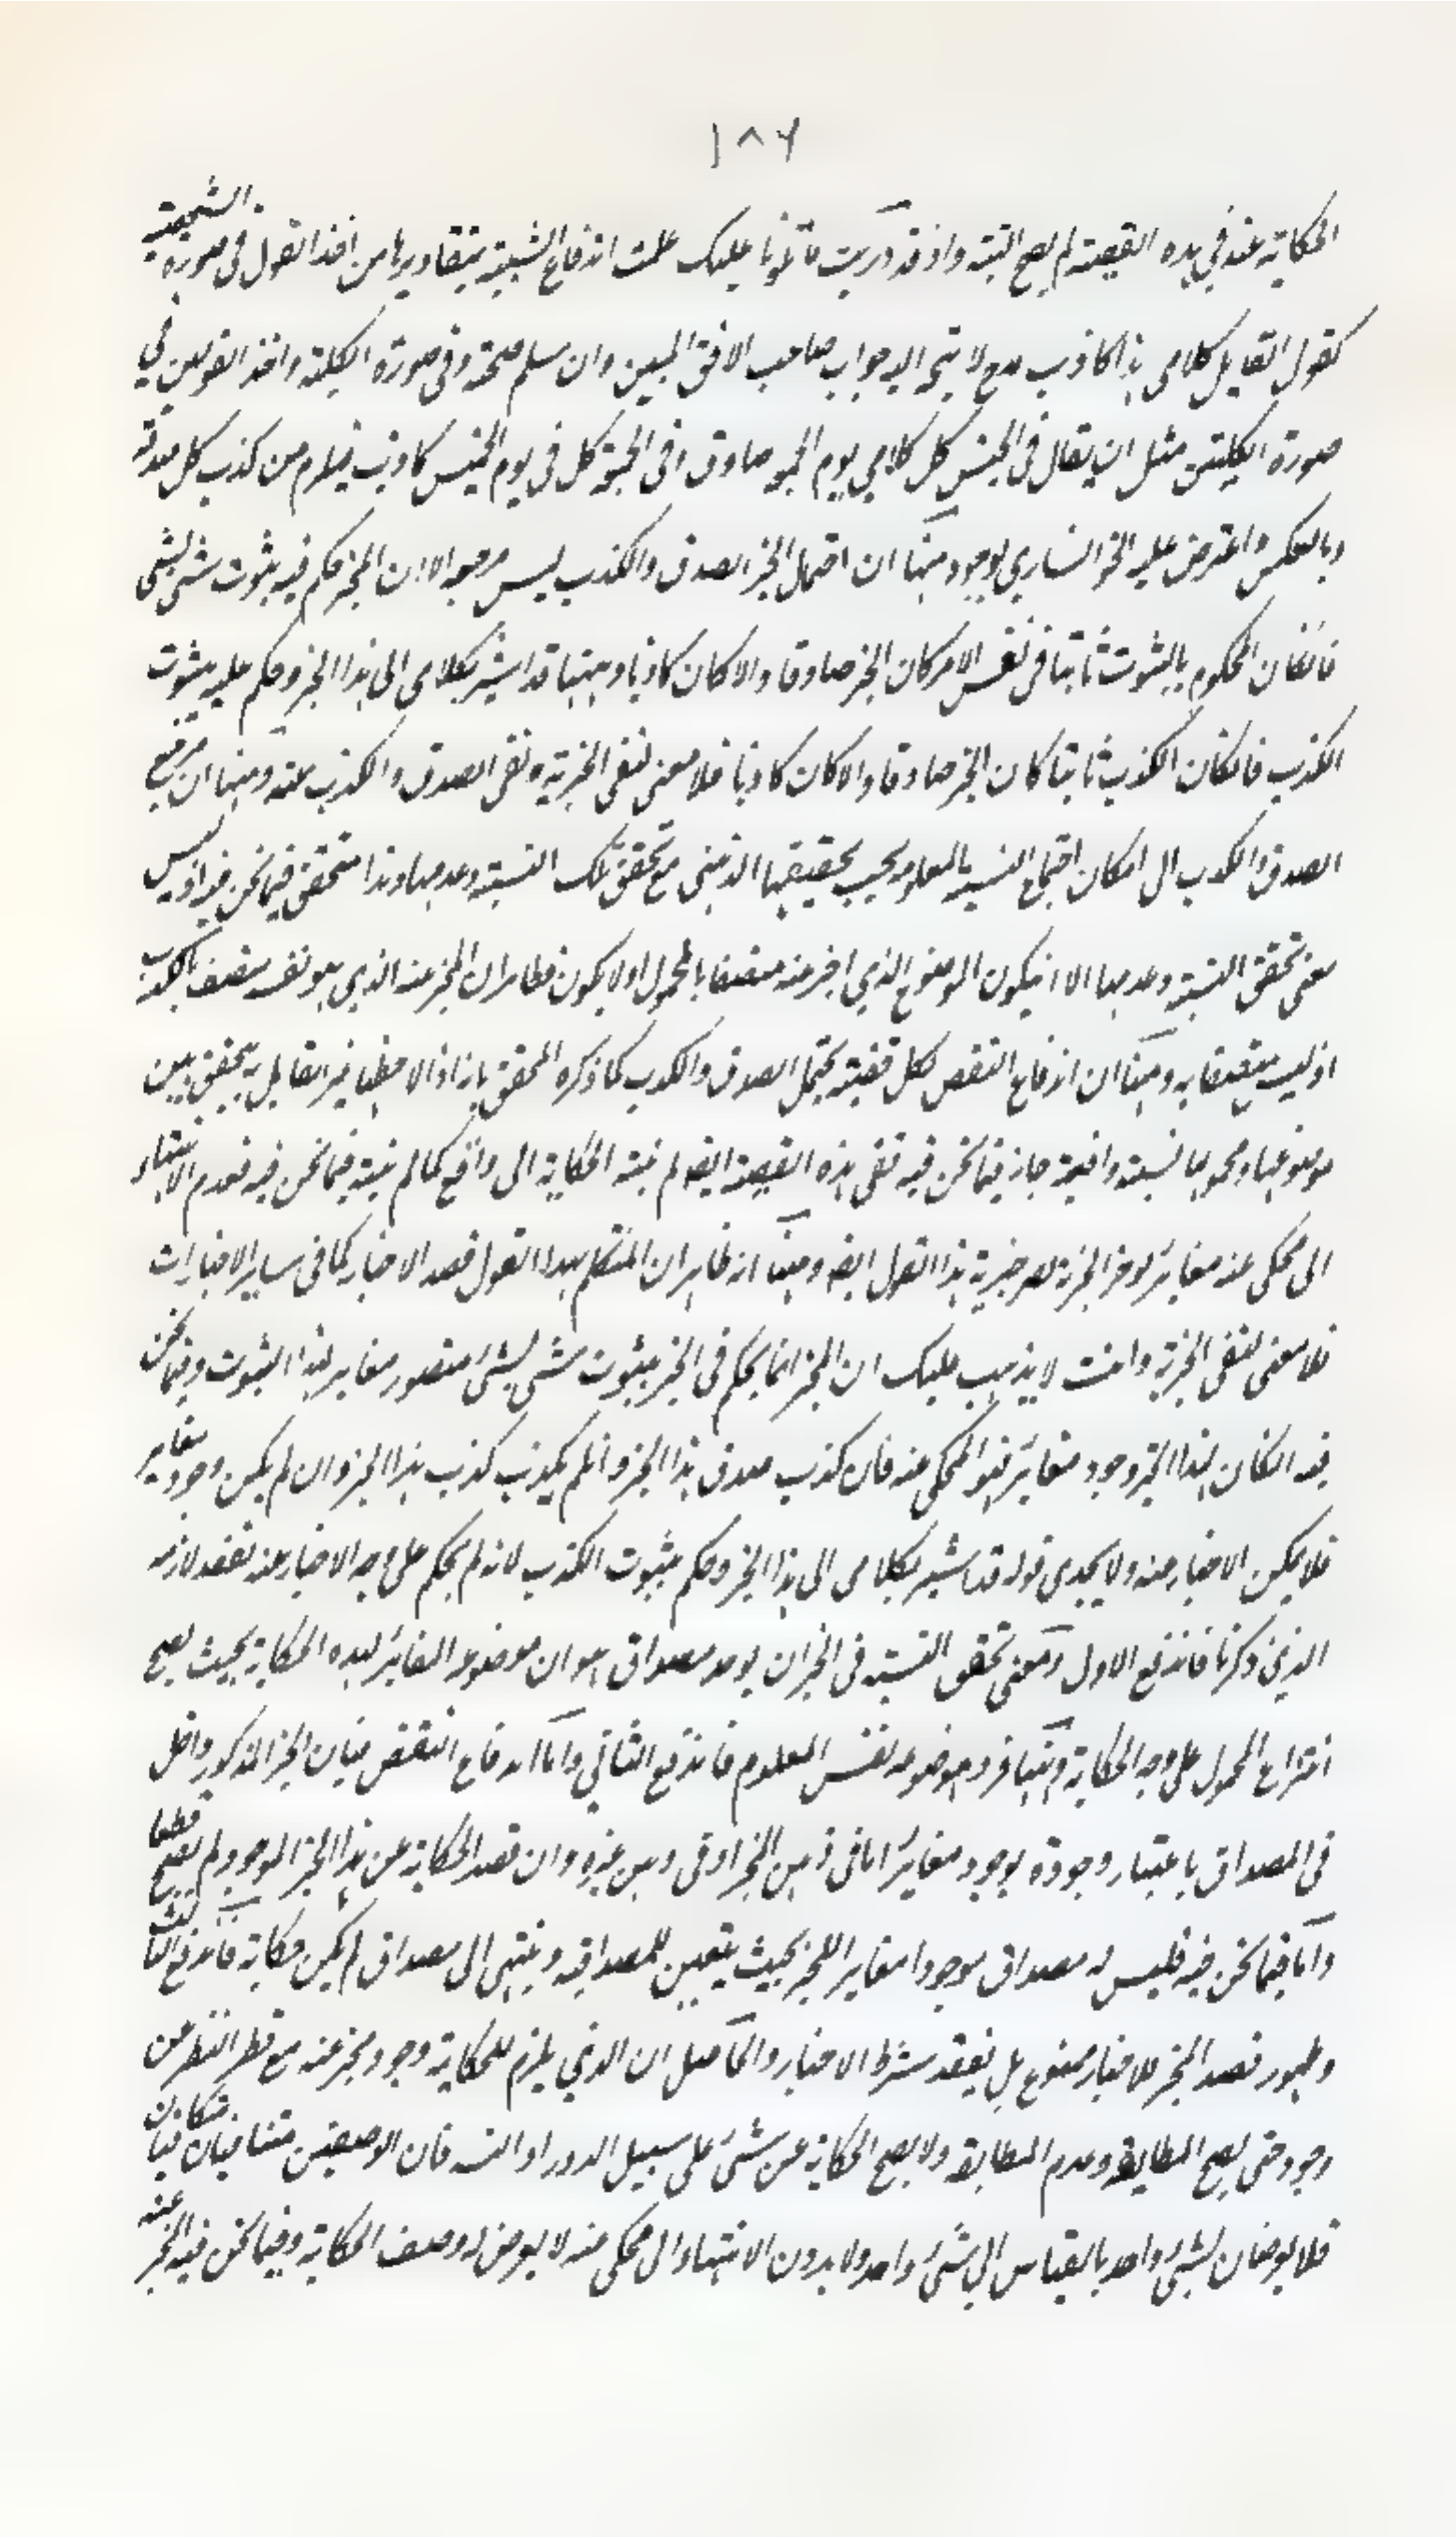 ١٨٦
الحكاية عنه في هذه القضية لم يصح البتة واذ قد دريت ما تلونا عليك علمت اندفاع الشبهة بتقاديرها من اخذ القول فى صورة الشخصية
كقول القايل كلامى هذا كاذب مع لا يتجه اليه جواب صاحب الافق المبين وان سلم صحته وفى صورة الكلية واخذ القولين في
صورة الكليتين مثل ان يقال فى الخميس كل كلامي يوم الجمعة صادق وفى الجمعة كل فى يوم الخميس كاذب فيلزم من كذب كل صدقه
وبالعكس واعترض عليه الخوانساري بوجوه منها ان احتمال الخبر الصدق والكذب ليس مرجعه الا ان المخبر حكم فيه بثوت شئ لشئ
فانكان المحكوم بالثبوت ثابتا فى نفس الامر كان الخبر صادقا والا كان كاذبا وههنا قد اشير بكلامى الى هذا الخبر وحكم عليه بثبوت
الكذب فانكان الكذب ثابتا كان الخبر صادقا والا كان كاذبا فلا معنى لنفى الخبرية ونفى الصدق والكذب عنه ومنها ان مرجع
الصدق والكذب الى امكان اجتماع النسبة المعلومة بحسب حقيقتها الذهنى مع تحقق تلك النسبة وعدمها وهذا متحقق فيما نحن فيه اذ ليس
معنى تحقق النسبة وعدمها الا ان يكون الموضوع الذي اخبر عنه متصفا بالمحمول اولا يكون فظاهر ان المخبر عنه الذي هو نفسه متصف بالكذب
او ليس متصفا به ومنها ان اندفاع النقض بكل قضية يحتمل الصدق والكذب كما ذكره المحقق بانه اذا لاحظنا فيما تقابل به تحقق بين
موضوعها ومحمولها نسبة واقعية جاز فيما نحن فيه ففى هذه القضية ايضا لم ينته الحكاية الى واقع كما لم ينته فيما نحن فيه فعدم الانتهاء
الى محكى عنه مغاير لو ضر الخبرية لضر خبرية هذا القول ايضا ومنها انه ظاهر ان المتكلم بهذا القول قصد الاخبار كما فى ساير الاخبارات
فلا معنى لنفى الخبرية وانت لا يذهب عليك ان المخبر انما يحكم فى الخبر بثبوت شئ لشئ متصور مغاير لهذا الثبوت وفيما نحن
فيه انكان لهذا الخبر وجود مغاير فهو المحكى عنه فان كذب صدق هذا الخبر وان لم يكذب كذب هذا الخبر وان لم يكن وجود مغاير
فلا يمكن الاخبار عنه ولا يجدى قوله قد اشير بكلامى الى هذا الخبر وحكم بثبوت الكذب لانه لم يحكم على وجه الاخبار عنه لفقد لازمه
الذي ذكرنا فاندفع الاول ومعنى تحقق النسبة فى الخبر ان يوجد مصداق هو ان موضوعه المغاير لهذه الحكاية بحيث يصح
انتزاع المحمول على وجه الحكاية وههنا موضوعه نفس المعلوم فاندفع الثاني واما اندفاع النقض فبان الخبر المذكور داخل
فى المصداق باعتبار وجوده بوجود مغاير اما فى ذهن المخبر او فى ذهن غيره وان قصد الحكاية عن هذا الخبر الموجود لم يصح قطعا
واما فيما نحن فيه فليس له مصداق موجود مغاير للخبر بحيث يتعين للمصداقية وينتهى الى مصداق لم يكن حكاية فاندفع الثالث
وظهور قصد المخبر للاخبار ممنوع بل يفقد شرط الاخبار والحاصل ان الذي يلزم للحكاية وجود مخبر عنه مع قطع النظر عن
وجود حتى يصح المطابقة وعدم المطابقة ولا يصح الحكاية عن شئ على سبيل الدور او التسلسل فان الوصفين متنافيان متكافيان
فلا يعرضان لشئ واحد بالقياس الى شئ واحد ولا بدون الانتهاء الى محكى عنه لا يعرض له وصف الحكاية وفيما نحن فيه المخبر عنه